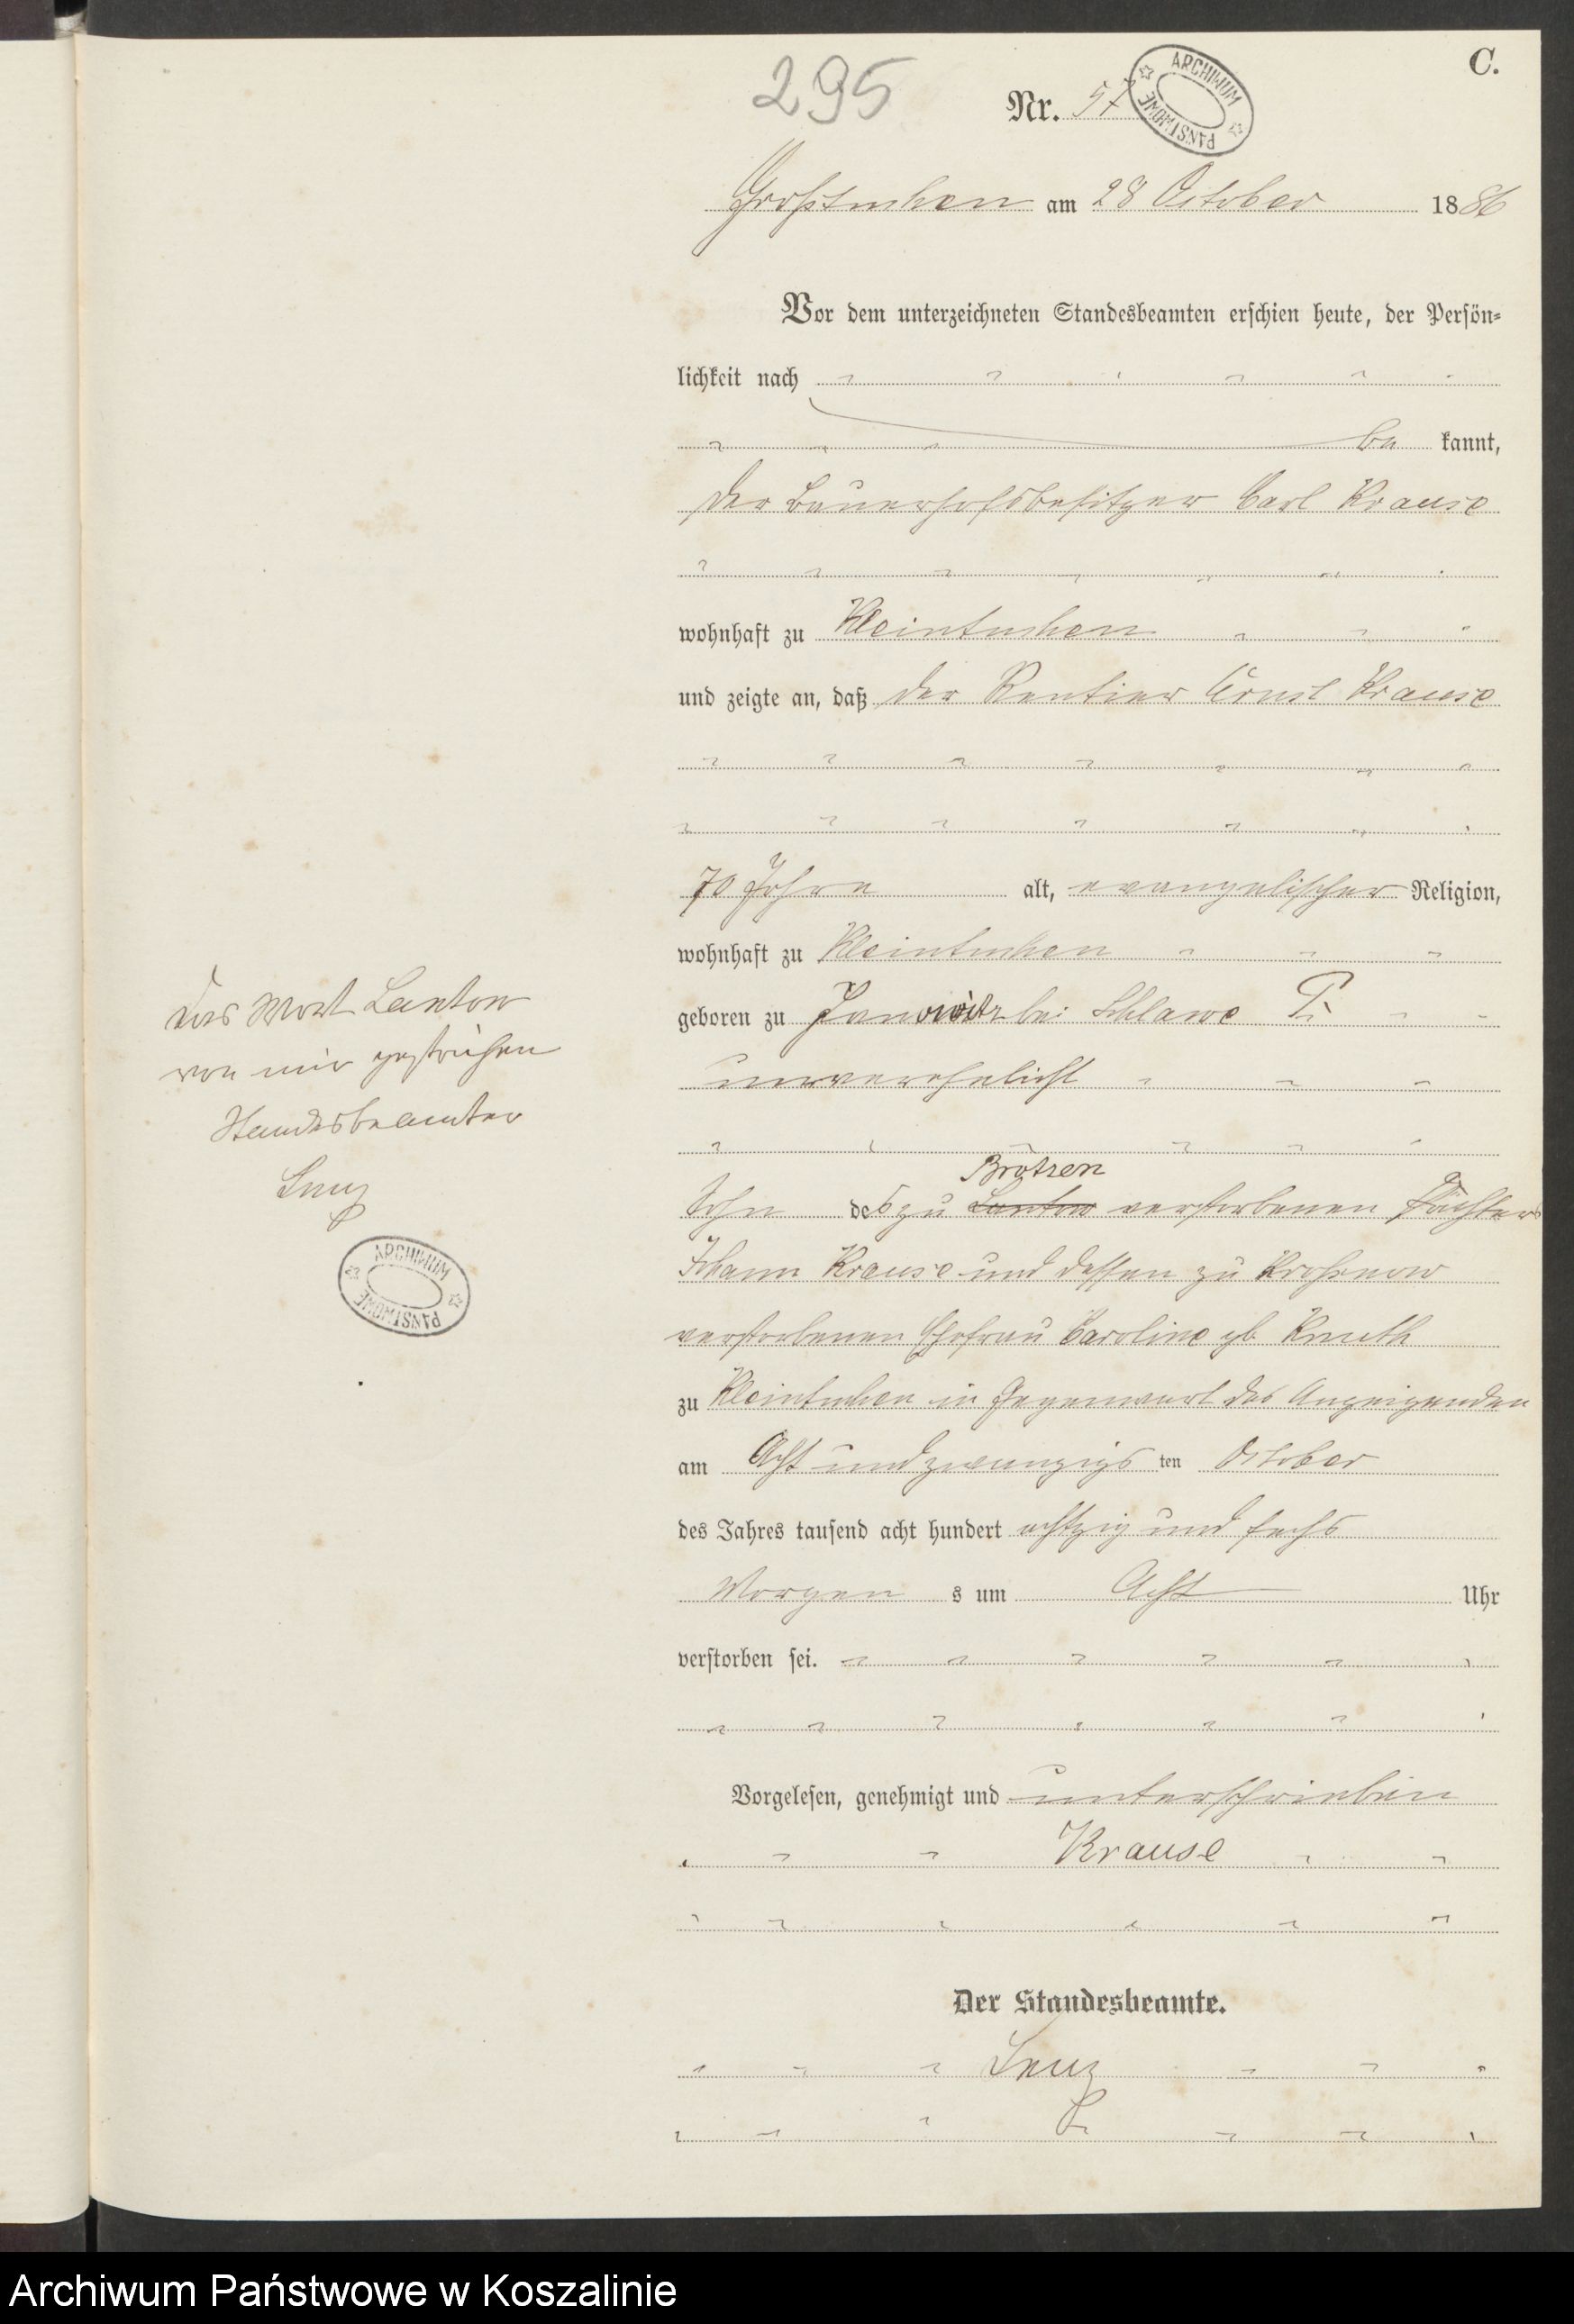 C.
295
Nr. 57
ARCHIWUM PAŃSTWOWE
Großtuchen am 28 October 1886
Vor dem unterzeichneten Standesbeamten erschien heute, der Persön-
lichkeit nach
be kannt,
der Bauerhofsbesitzer Carl Krause
wohnhaft zu Kleintuchen
und zeigte an, daß der Rentier Ernst Krause
70 Jahre alt, evangelischer Religion,
wohnhaft zu Kleintuchen
geboren zu Janowitz bei Schlawe
unverehelicht
Brötzen
Sohn des zu Lantow verstorbenen Pächters
Johann Krause und dessen zu Kroßnow
verstorbenen Ehefrau Caroline gb Knuth
zu Kleintuchen in Gegenwart des Anzeigenden
am Acht und zwanzigs ten October
des Jahres tausend acht hundert achtzig und sechs
Morgen s um Acht Uhr
verstorben sei.
Vorgelesen, genehmigt und unterschrieben
Krause
Der Standesbeamte.
Lenz
Das Wort Lantow
von mir gestrichen
Standesbeamter
Lenz
ARCHIWUM PAŃSTWOWE
Archiwum Państwowe w Koszalinie